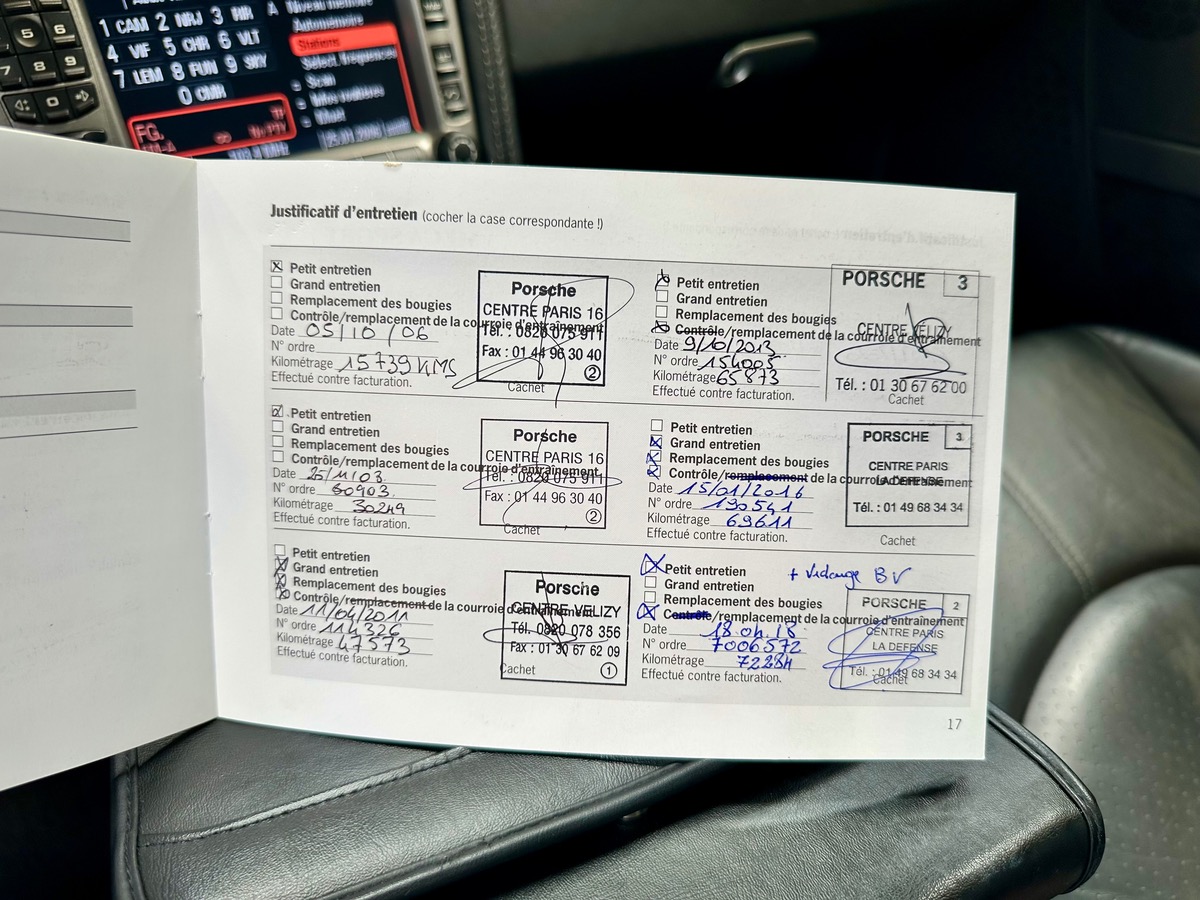 1 CAM 2 NRJ 3 NR
4 VIF 5 CHR 6 VLT
7 LEM 8 FUN 9 SKY
0 CMR
Autonémoire
Stations
Select. fréquences
Scan
Infos routières
FG.
5 6
7 8 9
Justificatif d'entretien (cocher la case correspondante !)
Petit entretien
Grand entretien
Remplacement des bougies
Contrôle/remplacement de la courroie d'entraînement
Date 05/10/06
N° ordre
Kilométrage 15739 KMS
Effectué contre facturation.
Porsche
CENTRE PARIS 16
Tél. : 0820 075 911
Fax : 01 44 96 30 40
2
Cachet
Petit entretien
Grand entretien
Remplacement des bougies
Contrôle/remplacement de la courroie d'entraînement
Date
N° ordre 80903
Kilométrage 30249
Effectué contre facturation.
Porsche
CENTRE PARIS 16
Tél. : 0820 075 911
Fax : 01 44 96 30 40
2
Cachet
Petit entretien
Grand entretien
Remplacement des bougies
Contrôle/remplacement de la courroie d'entraînement
Date 11/04/2011
N° ordre 114326
Kilométrage 47573
Effectué contre facturation.
Porsche
CENTRE VELIZY
Tél. 0820 078 356
Fax : 01 30 67 62 09
Cachet
1
Petit entretien
Grand entretien
Remplacement des bougies
Contrôle/remplacement de la courroie d'entraînement
Date 9/10/2013
N° ordre 154005
Kilométrage 65873
Effectué contre facturation.
PORSCHE 3
CENTRE VELIZY
Tél. : 01 30 67 62 00
Cachet
Petit entretien
Grand entretien
Remplacement des bougies
Contrôle/remplacement de la courroie d'entraînement
Date 15/01/2016
N° ordre 190541
Kilométrage 69611
Effectué contre facturation.
PORSCHE 3
CENTRE PARIS
LA DEFENSE
Tél. : 01 49 68 34 34
Cachet
Petit entretien + Vidange BV
Grand entretien
Remplacement des bougies
Contrôle/remplacement de la courroie d'entraînement
Date 18 04 18
N° ordre 7006572
Kilométrage 72284
Effectué contre facturation.
PORSCHE 2
CENTRE PARIS
LA DEFENSE
Tél. : 01 49 68 34 34
Cachet
17